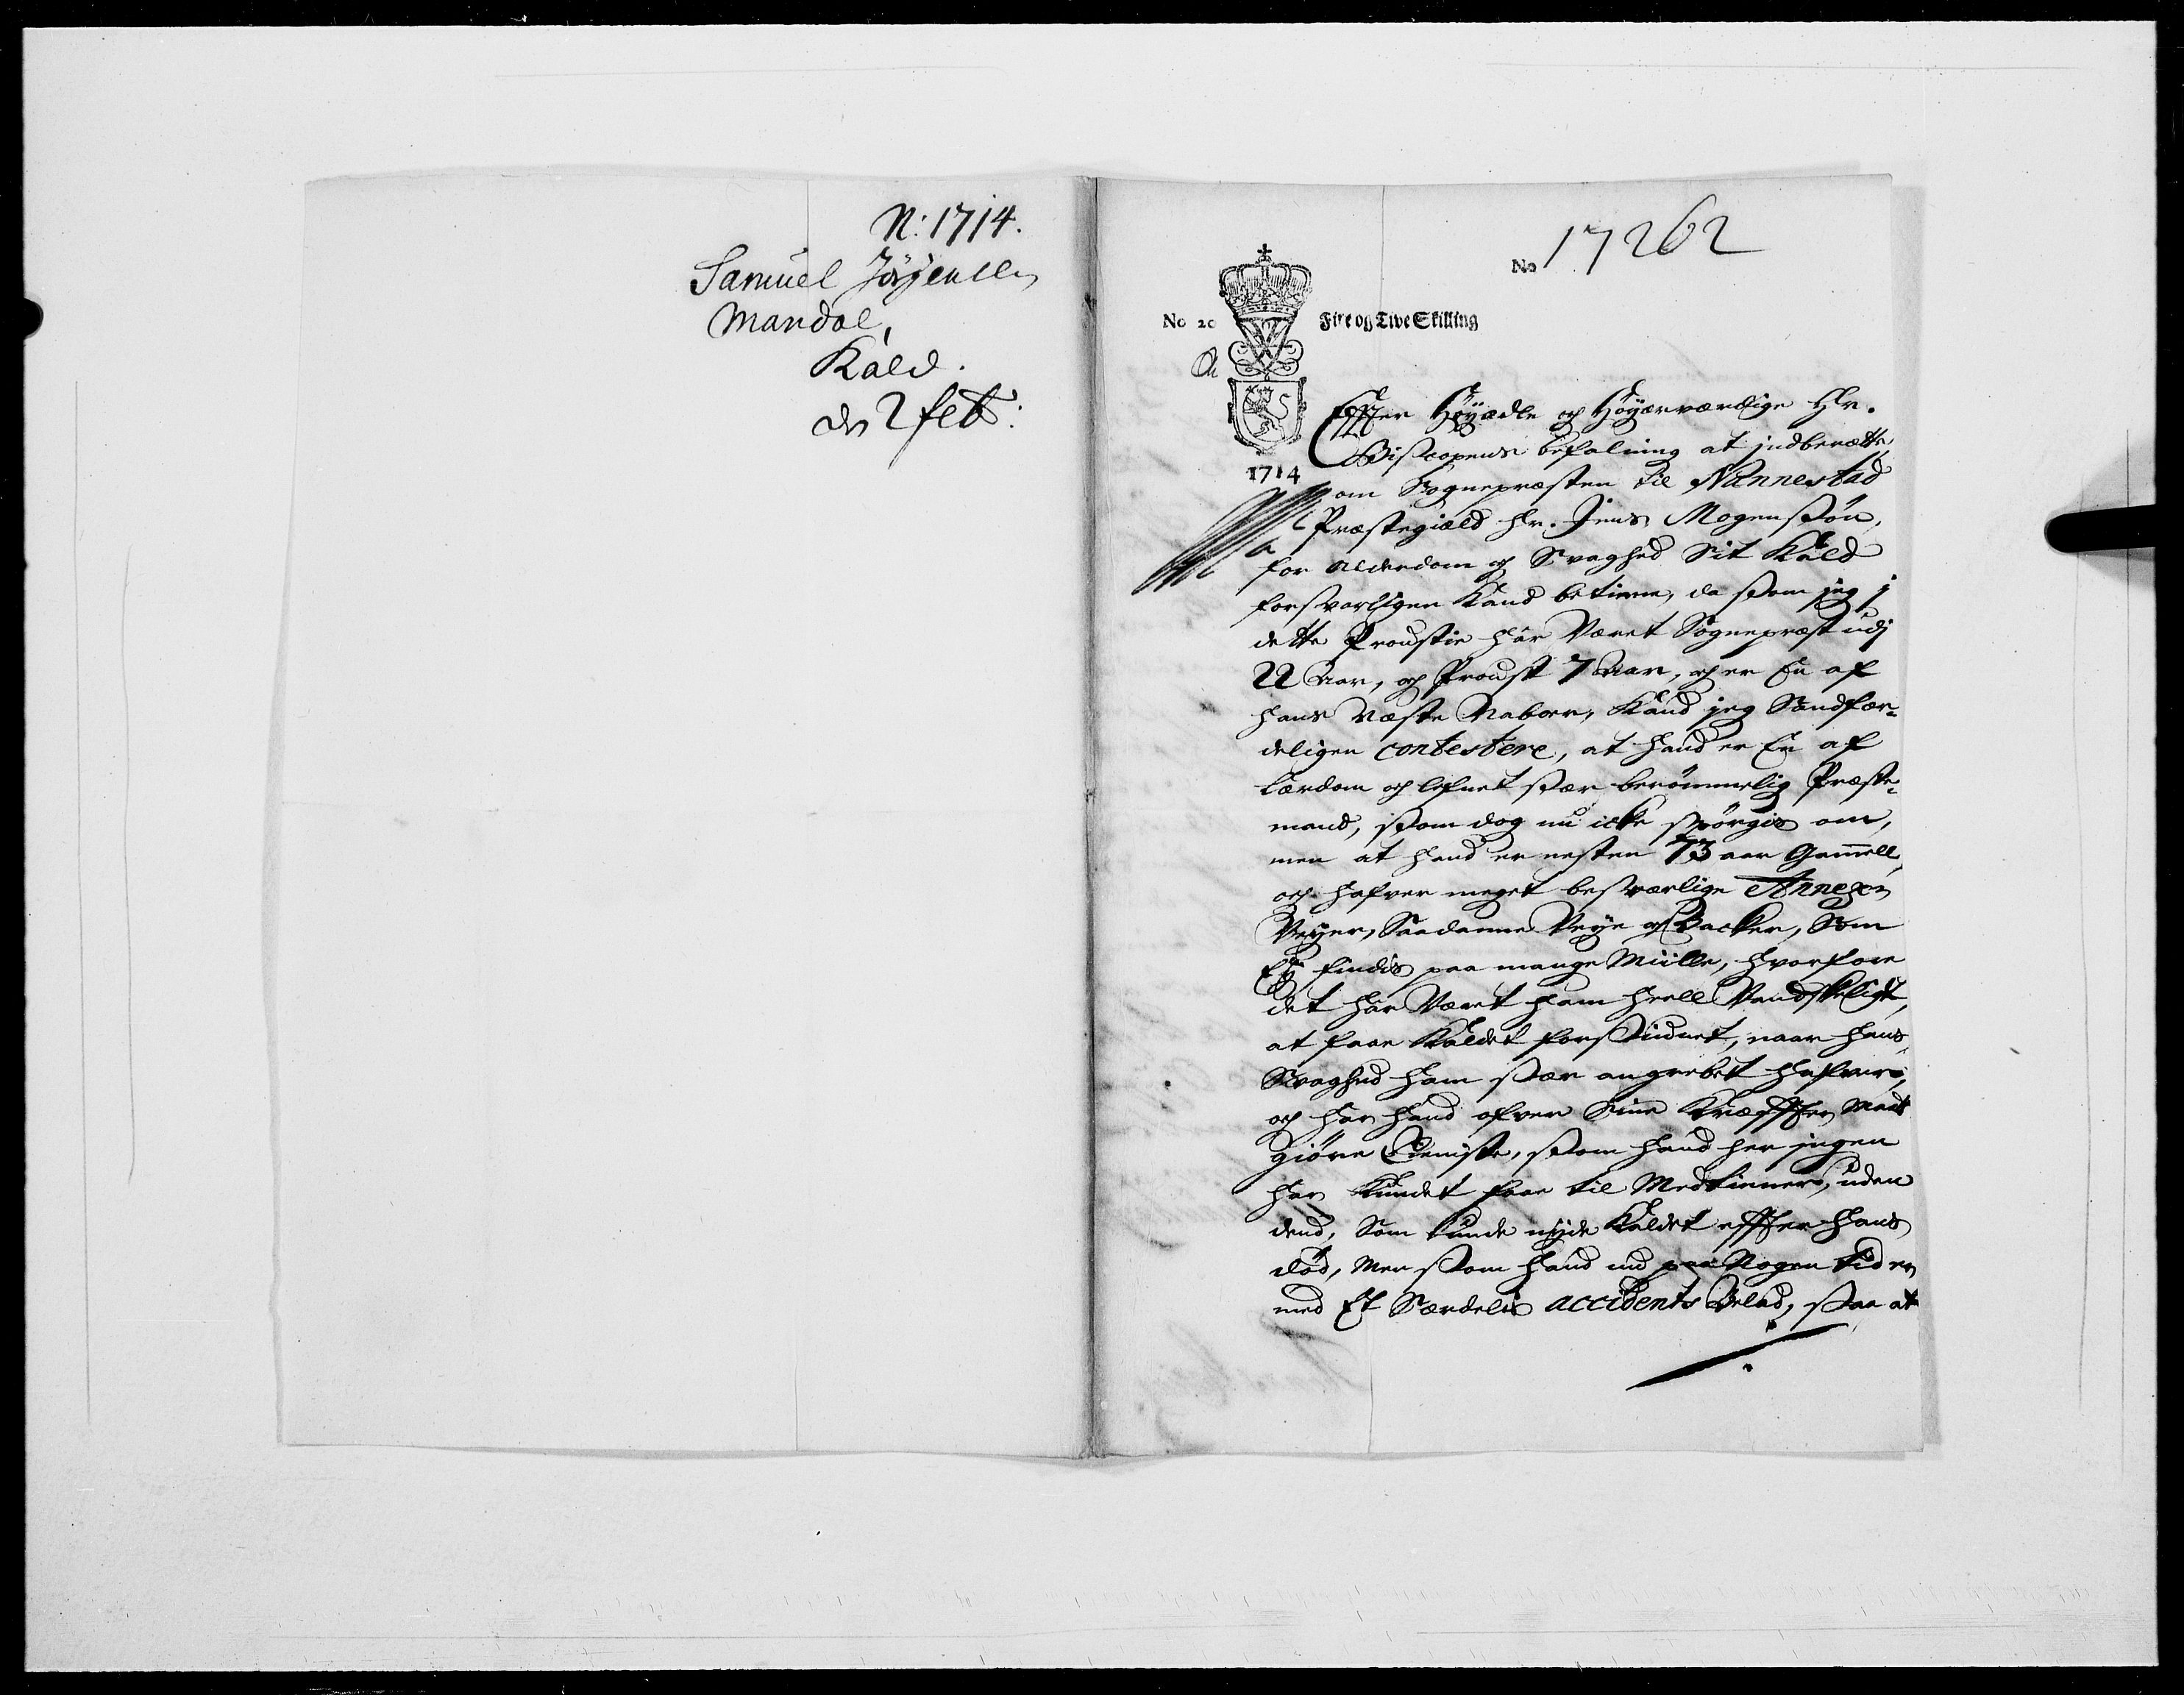 N: 1714.
Samuel Jörgensen
Mandal,
Kald.
dn 2 feb:
No 17262
No 20 Fire og Tive Skilling
1714
Effter Höÿædle og Höÿærværdige Hr.
Biscopens befalning at indberætte
om Sognepræsten til Nannestad
Præstegield Hr. Jens Mogensøn,
for Alderdom og Svaghed Sit Kald
forsvarligen Kand betiene, da som jeg j
dette Proustie har Været Sognepræst udj
22 Aar, og Proust 7 Aar, og er En af
hans Næste Naboer, Kand jeg Sandfær-
deligen contestere, at hand er En af
lærdom og lefnet sær berømmelig Præste-
mand, som dog nu icke spørgis om,
men at hand er nesten 73 aar Gammell,
og hafver meget besværlige Annexen
Veÿer, Saadanne Veÿe og Backer, Som
Eÿ findis paa mange Miille, hvorfore
det har Været ham heell Vandskeligt,
at faae Kaldet forsiunet, naar hans
Svaghed ham sær angrebet hafver,
og har hand ofver Sine Kræffter Mat
giøre Tieniste, som hand her ingen
har Kundet faae til Medtienere, uden
dend, Som kunde nÿde Kaldet effter hans
død, Men som hand nu paa Nogen tid er
med Et Særdelis accidents Belad, saa at